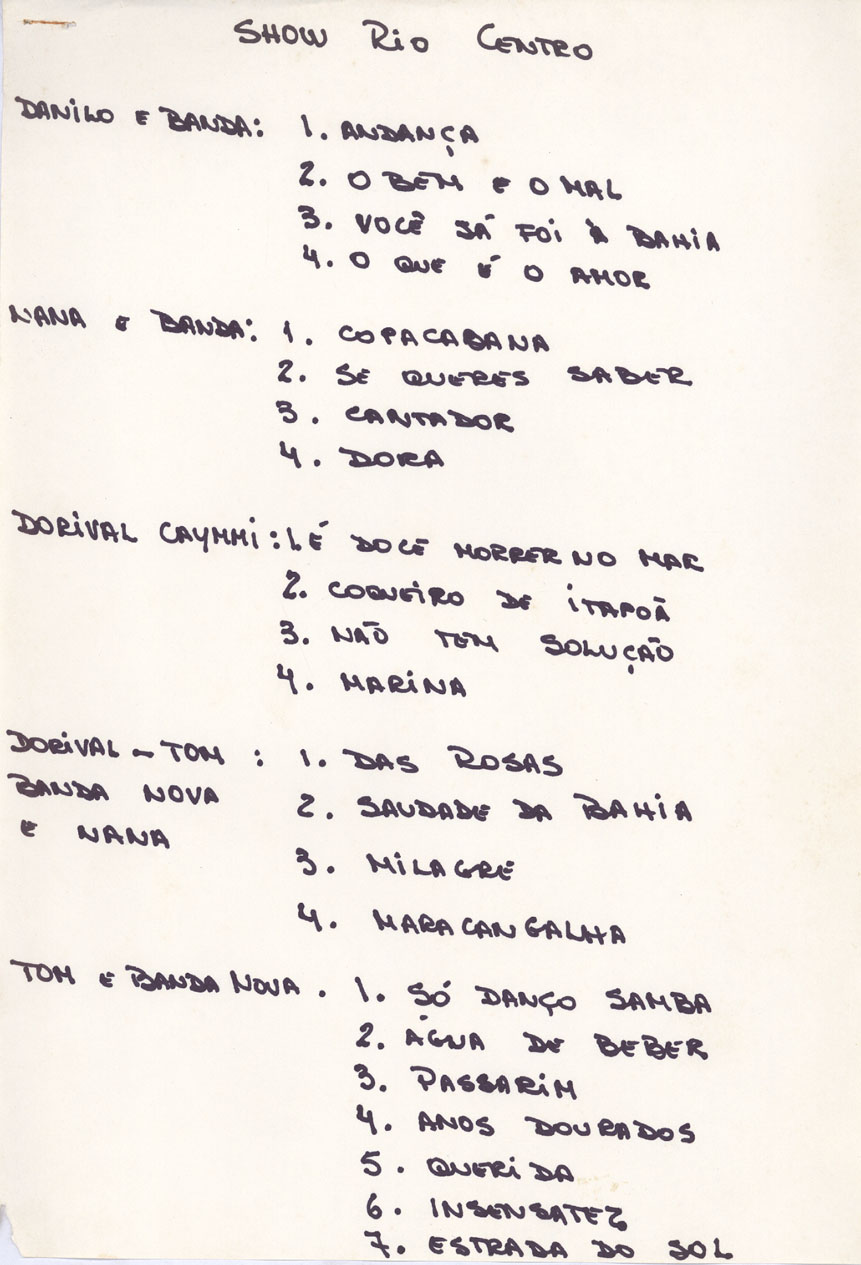 SHOW RIO CENTRO
DANILO E BANDA: 1. ANDANÇA
2. O BEM E O MAL
3. VOCÊ JÁ FOI À BAHIA
4. O QUE É O AMOR
NANA E BANDA: 1. COPACABANA
2. SE QUERES SABER
3. CANTADOR
4. DORA
DORIVAL CAYMMI: 1. É DOCE MORRER NO MAR
2. COQUEIRO DE ITAPOÃ
3. NÃO TEM SOLUÇÃO
4. MARINA
DORIVAL - TOM : 1. DAS ROSAS
BANDA NOVA 2. SAUDADE DA BAHIA
E NANA
3. MILAGRE
4. MARACANGALHA
TOM E BANDA NOVA . 1. SÓ DANÇO SAMBA
2. ÁGUA DE BEBER
3. PASSARIM
4. ANOS DOURADOS
5. QUERIDA
6. INSENSATEZ
7. ESTRADA DO SOL